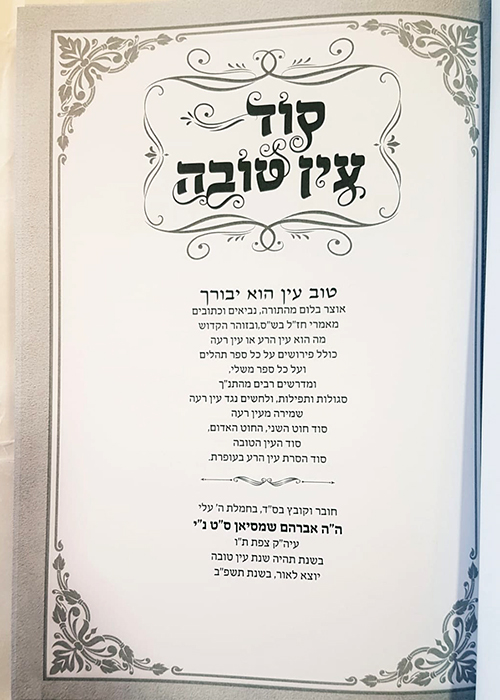 סוד
עין טובה
טוב עין הוא יבורך
אוצר בלום מהתורה, נביאים וכתובים
מאמרי חז"ל בש"ס, ובזוהר הקדוש
מה הוא עין הרע או עין רעה
כולל פירושים על כל ספר תהלים
ועל כל ספר משלי,
ומדרשים רבים מהתנ"ך
סגולות ותפילות, ולחשים נגד עין רעה
שמירה מעין רעה
סוד חוט השני, החוט האדום,
סוד העין הטובה
סוד הסרת עין הרע בעופרת.
חובר וקובץ בס"ד, בחמלת ה' עלי
ה"ה אברהם שמסיאן ס"ט נ"י
עיה"ק צפת ת"ו
בשנת תהיה שנת עין טובה
יוצא לאור, בשנת תשפ"ב